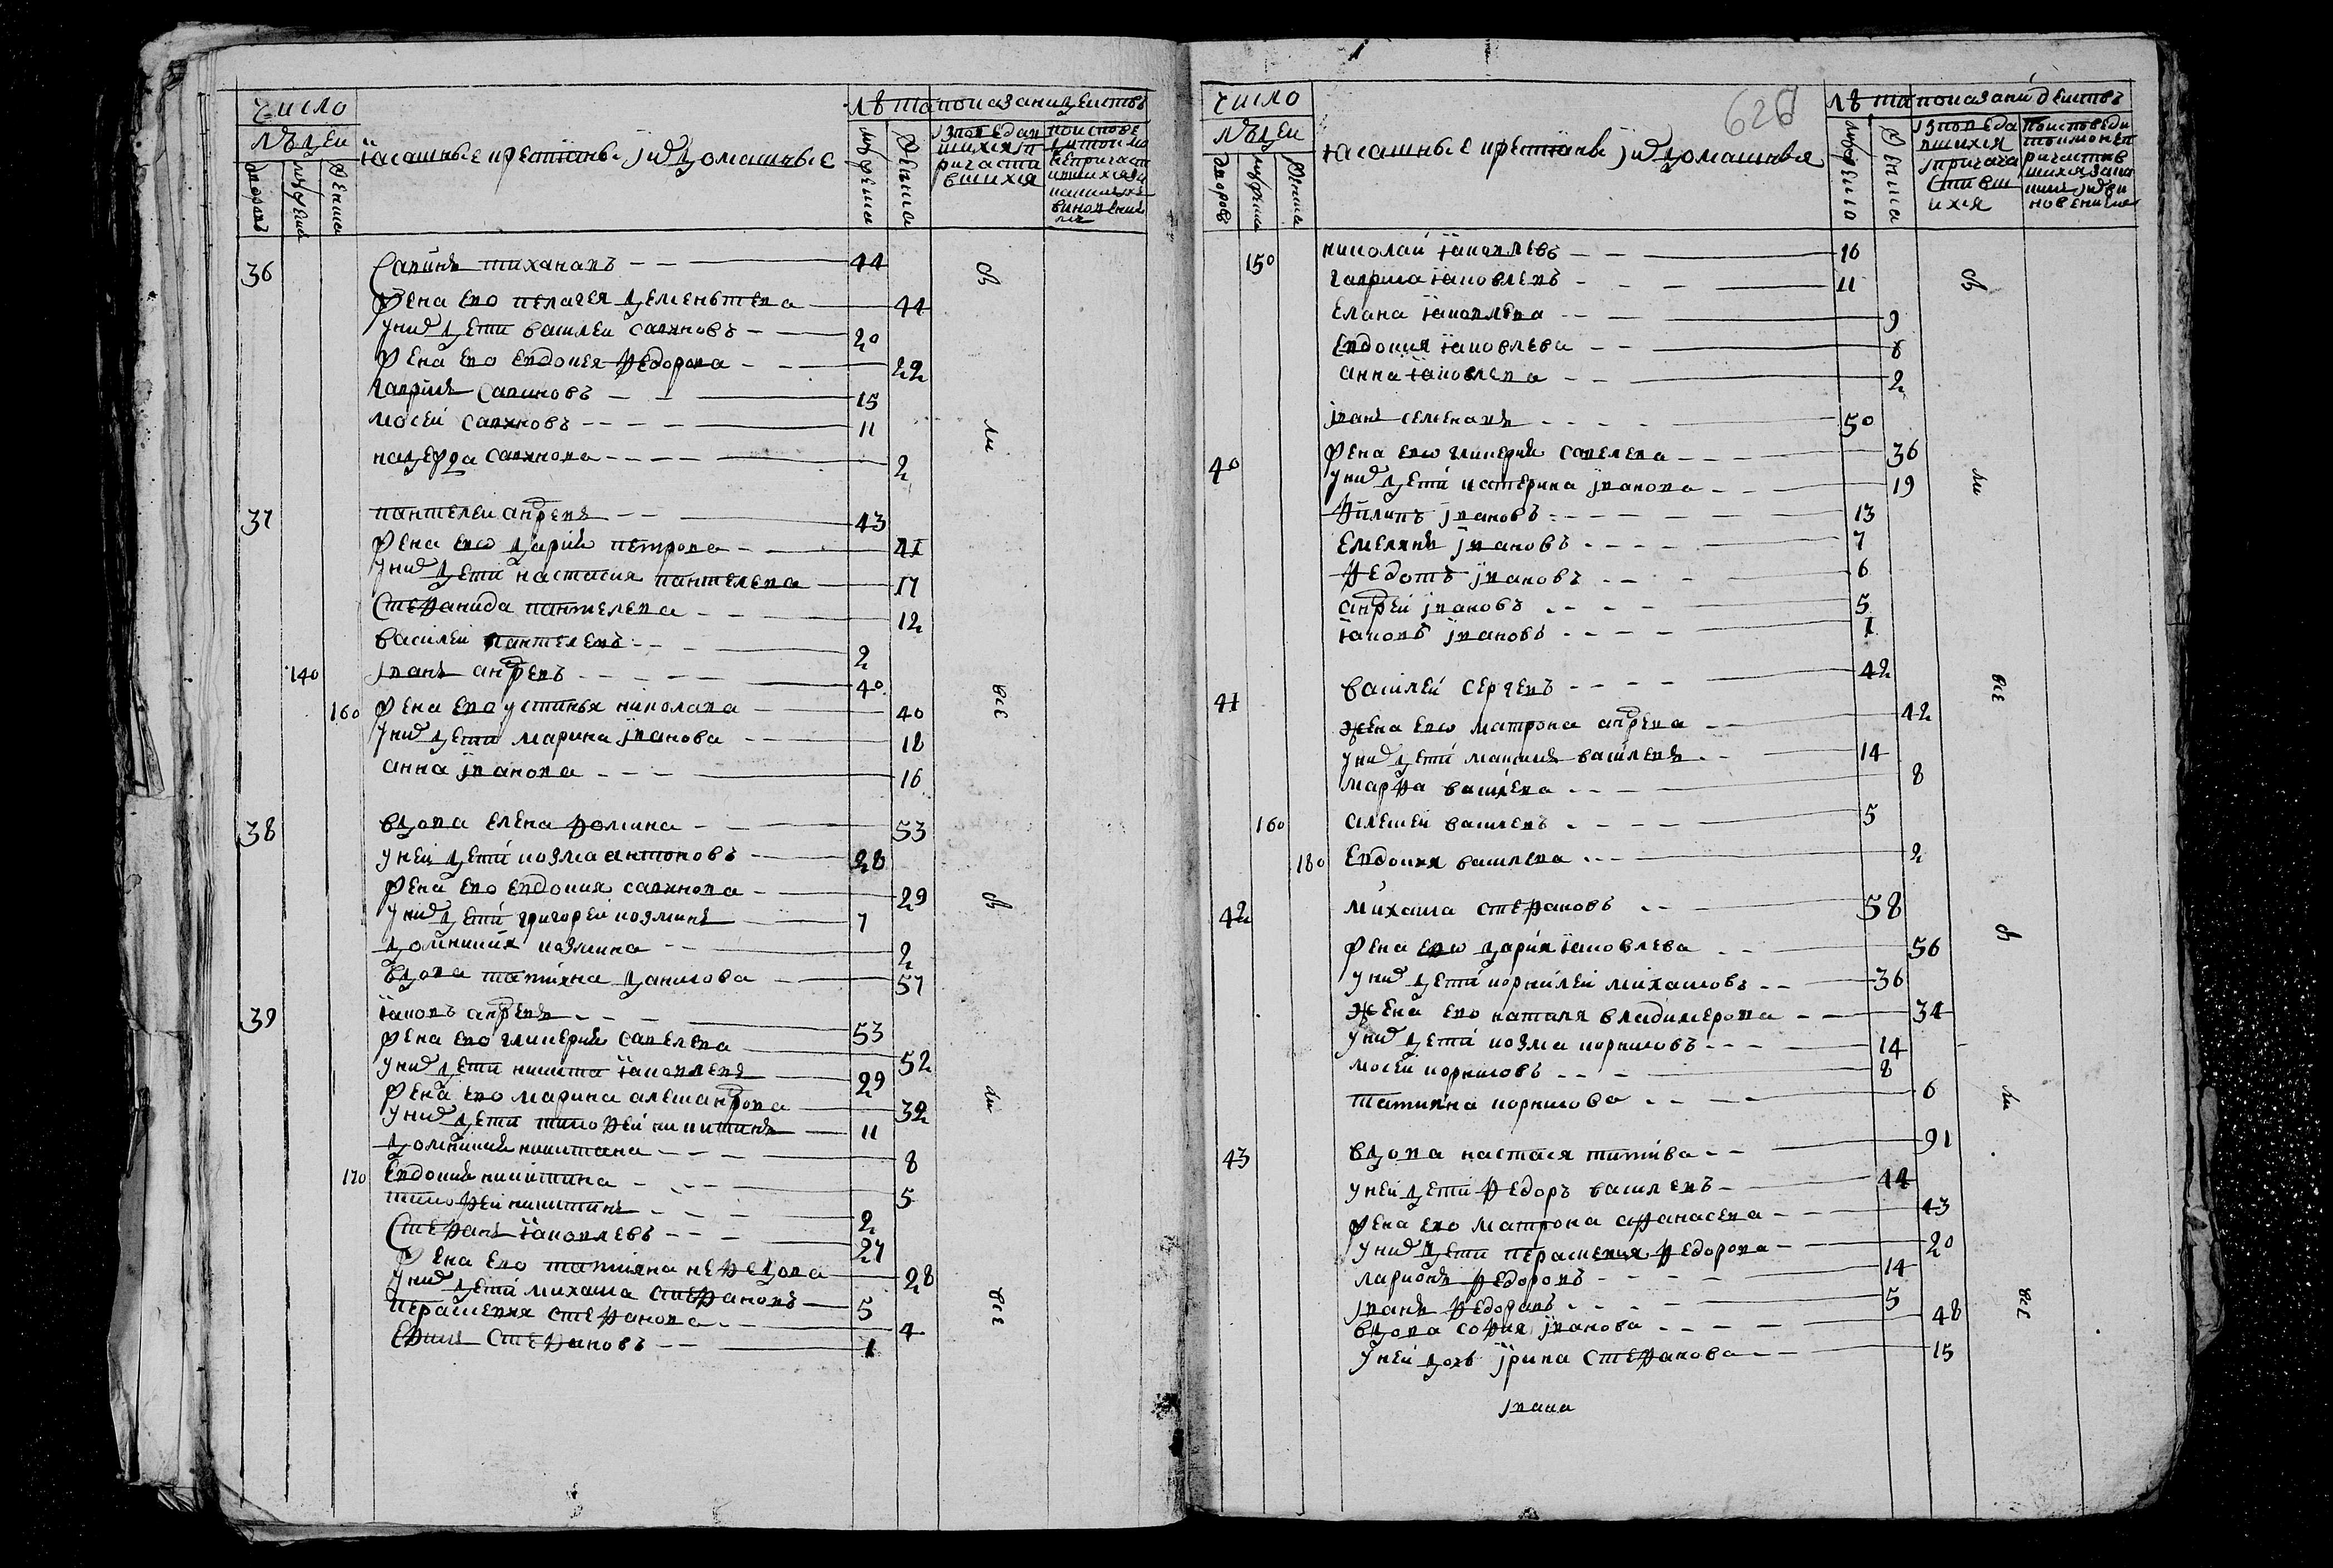 число
людеи
дворовъ
мужеска
женска
ясашные крестьянѣ и ихъ домашные
лѣта
мужеска
женска
показани действъ
исповедавшихся и причастившихся
36 Савинъ тихановъ 44
жена ево пелагея дементева 44
у нихъ дети василеи савиновъ 20
жена ево евдокея федорова 22
гаврилъ савиновъ 15
мосеи савиновъ 11
надежда савинова 2
37 пантелеи андревъ 43
жена ево дария петрова 41
у нихъ дети настасия пантелева 17
стефанида пантелева 12
василеи пантелевъ 2
140 иванъ андревъ 40
160 жена ево устинья николава 40
у нихъ дети марина иванова 18
анна иванова 16
38 вдова елена фомина 53
у неи дети козма антоновъ 28
жена ево евдокия савинова 29
у нихъ дети григореи козминъ 7
домникия козмина 2
вдова татияна данилова 57
39 иаковъ андревъ 53
жена ево гликерия савелева 52
у нихъ дети никита иаковлевъ 29
жена ево марина алешандрова 32
у нихъ дети тимофеи никитинъ 11
домникия никитина 8
170 евдокия никитина 5
тимофеи никитинъ 2
стефанъ иаковлевъ 27
жена ево татияна нефедова 28
у нихъ дети михаила стефановъ 5
парасковия стефанова 4
ефимъ стефановъ 1
вѣ
ли
всѣ
вѣ
ли
всѣ
628
число
людеи
дворовъ
мужеска
женска
ясашные крестьянѣ и ихъ домашныя
лѣта
мужеска
женска
показани действъ
исповедавшихся и причастившихся
150 николаи иаковлевъ 16
гаврила иаковлевъ 11
елана иаковлева 9
евдокия иаковлева 8
анна иаковлева 2
иванъ семенавъ 50
40 жена ево гликерия савелева 36
у нихъ дети катерина иванова 19
филипъ ивановъ 13
емелянъ ивановъ 7
федотъ ивановъ 6
андреи ивановъ 5
иаковъ ивановъ 1
41 василеи сергевъ 42
жена ево матрона андрева 42
у нихъ дети максимъ василевъ 14
марфа василева 8
160 алешеи василевъ 5
180 евдокия василева 2
42 михаила стефановъ 58
жена ево дария иаковлева 56
у нихъ дети корнилеи михаиловъ 36
жена ево наталя владимерова 34
у нихъ дети козма корниловъ 14
мосеи корниловъ 8
татияна корнилова 6
43 вдова настася титова 91
у неи дети федоръ василевъ 44
жена ево матрона афанасева 43
у нихъ дети парасковия федорова 20
ларионъ федоровъ 14
иванъ федоравъ 5
вдова софия иванова 48
у неи дочь ирина стефанова 15
вѣ
ли
всѣ
вѣ
ли
всѣ